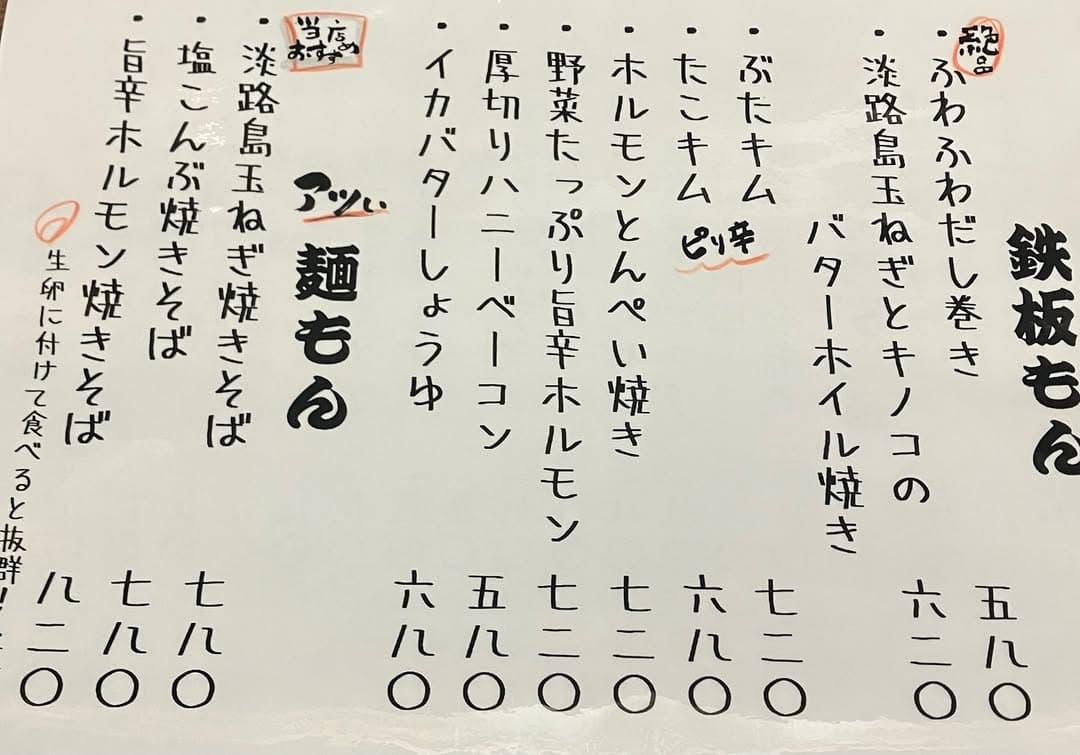 鉄板もん
絶品
・ふわふわだし巻き 五八〇
・淡路島玉ねぎとキノコの
バターホイル焼き 六二〇
・ぶたキム 七二〇
ピリ辛
・たこキム 六八〇
・ホルモンとんぺい焼き 七二〇
・野菜たっぷり旨辛ホルモン 七二〇
・厚切りハニーベーコン 五八〇
・イカバターしょうゆ 六八〇
アツい
麺もん
当店おすすめ
・淡路島玉ねぎ焼きそば 七八〇
・塩こんぶ焼きそば 七八〇
・旨辛ホルモン焼きそば 八二〇
生卵に付けて食べると抜群！